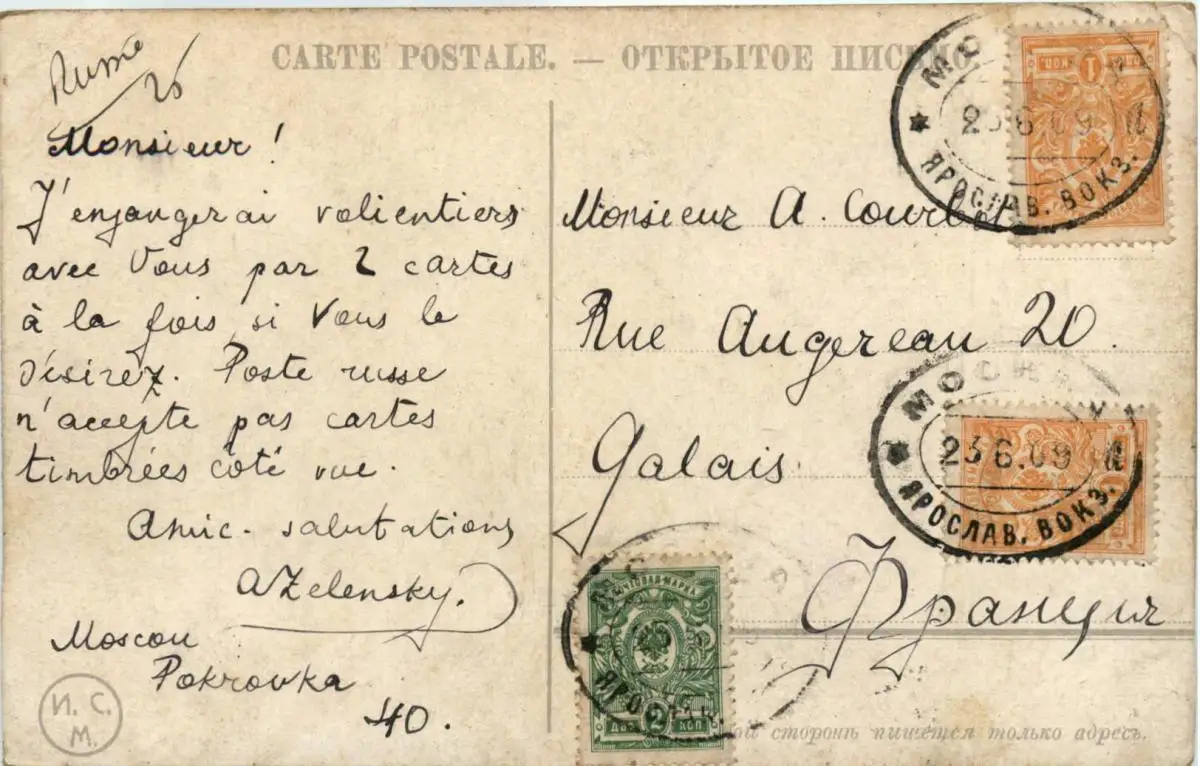 Russie
26
CARTE POSTALE. — ОТКРЫТОЕ ПИСЬМО
Monsieur!
J'enjangerai volientiers
avec Vous par 2 cartes
à la fois, si Vous le
désirez. Poste russe
n'accepte pas cartes
timbrées coté vue.
Amic. salutations
AZelensky.
Moscou
Pokrovka
40.
И. С.
М.
Monsieur A. Courbet
Rue Augereau 20.
Galais
Франция
МОСКВА
23 6.09
ЯРОСЛАВ. ВОКЗ.
1
КОП.
МОСКВА
23 6.09
ЯРОСЛАВ. ВОКЗ.
ПОЧТОВАЯ МАРКА
ДВЕ 2 КОП
ЯРОС
сторонѣ пишется только адресъ.